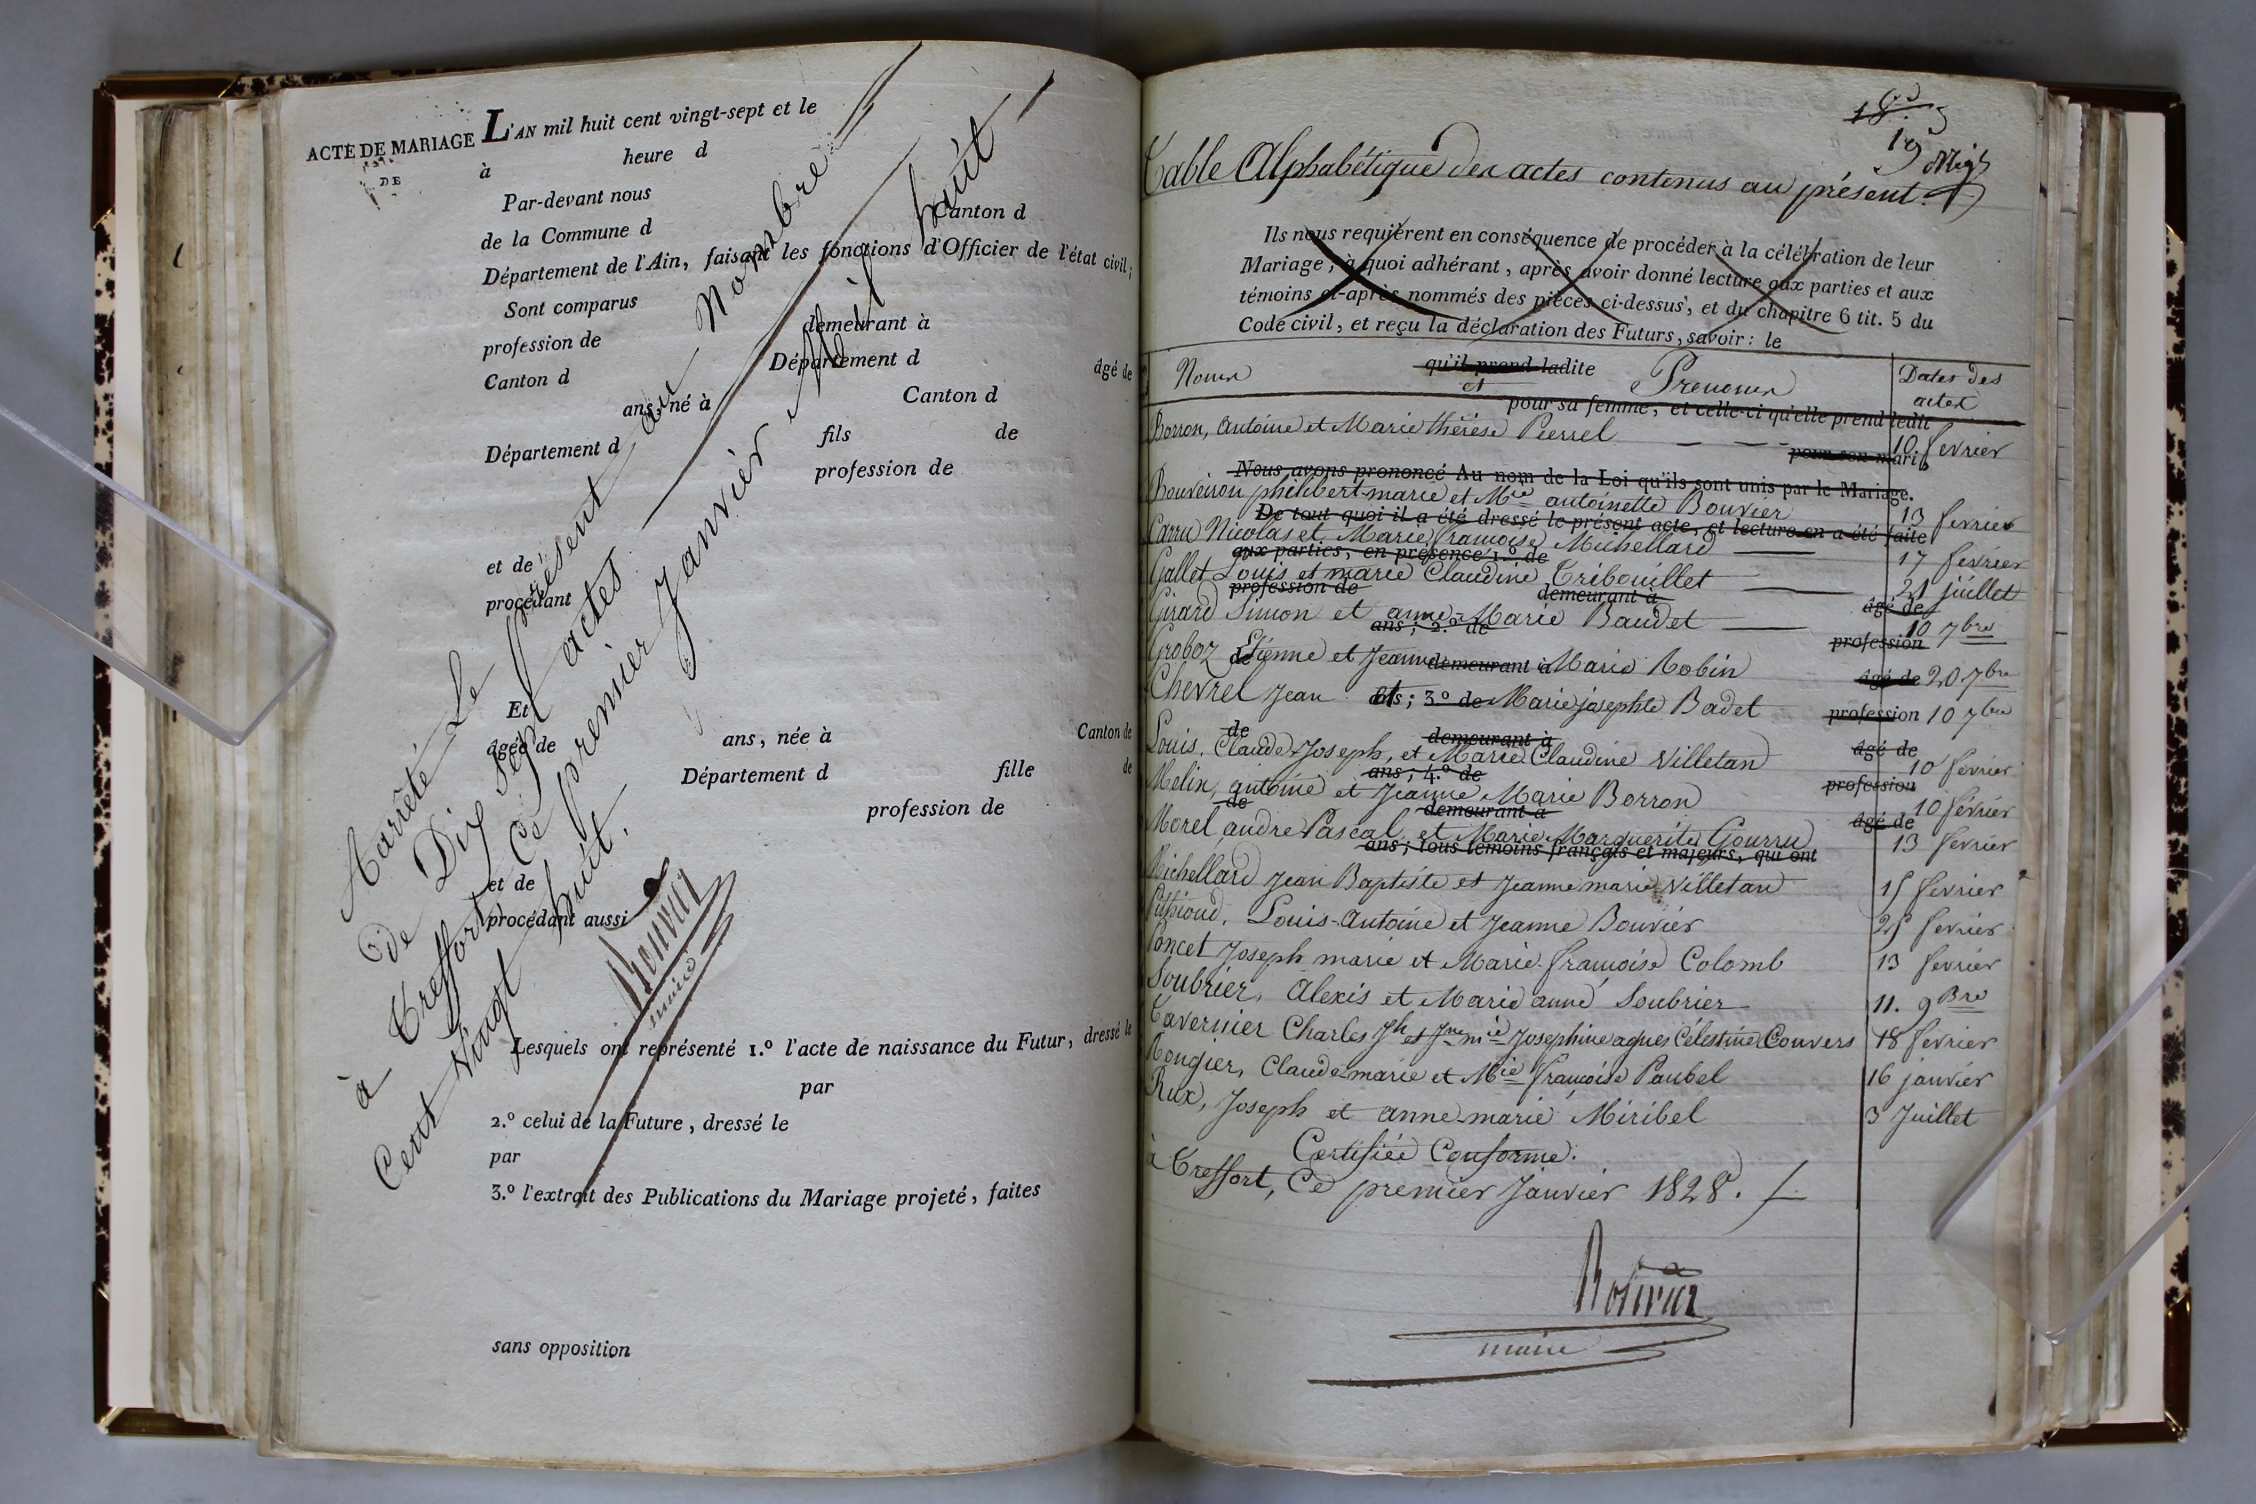 ACTE DE MARIAGE
DE
L'AN mil huit cent vingt-sept et le
à heure d
Par-devant nous
de la Commune d Canton d
Département de l'Ain, faisant les fonctions d'Officier de l'état civil;
Sont comparus
profession de demeurant à
Canton d Département d âgé de
ans, né à Canton d
Département d fils de
profession de
et de
procédant
Et
âgée de ans, née à Canton de
Département d fille de
profession de
et de
procédant aussi
Lesquels ont représenté 1.º l'acte de naissance du Futur, dressé le
par
2.º celui de la Future, dressé le
par
3.º l'extrait des Publications du Mariage projeté, faites
sans opposition
Arrêté Le présent au Nombre
de Dix sept actes
à Treffort, Ce premier Janvier Mil huit
Cent Vingt huit.
Bouvier
maire
18
19
Table Alphabétique des actes contenus au présent.
Ils nous requièrent en conséquence de procéder à la célébration de leur
Mariage; à quoi adhérant, après avoir donné lecture aux parties et aux
témoins ci-après nommés des pièces ci-dessus, et du chapitre 6 tit. 5 du
Code civil, et reçu la déclaration des Futurs, savoir: le
qu'il prend ladite
Noms et Prenoms Dates des
actes
pour sa femme, et celle-ci qu'elle prend ledit
Borron, antoine et Marie thérèse Perrel 10 fevrier
pour son mari
Nous avons prononcé Au nom de la Loi qu'ils sont unis par le Mariage.
Bouveiron philibert-marie et Mie antoinette Bouvier 13 fevrier
De tout quoi il a été dressé le présent acte, et lecture en a été faite
Carru Nicolas et Marie françoise Michellard 17 fevrier
aux parties, en présence 1.º de
Gallet Louis et marie Claudine Tribouillet 21 juillet
profession de demeurant à
âgé de
Girard Simon et anne-Marie Baudet 10 7bre
ans; 2.º de profession
Groboz Etienne et Jeanne Marie Robin 20 7bre
de demeurant à âgé de
Chevrel Jean et Marie josephte Badet 10 7bre
ans; 3.º de profession
de demeurant à âgé de
Louis, Claude-Joseph, et Marie Claudine Villetan 10 fevrier
ans; 4.º de profession
Melin, antoine et Jeanne Marie Borron 10 fevrier
de demeurant à âgé de
Morel, andré Pascal et Marie Marguerite Gourru 13 fevrier
ans; tous témoins français et majeurs, qui ont
Michellard Jean Baptiste et Jeanne marie Villetan 15 fevrier
Louis-Antoine et Jeanne Bouvier 25 fevrier
Poncet Joseph marie et Marie françoise Colomb 13 fevrier
Soubrier, Alexis et Marie anne Soubrier 11. 9Bre
Tavernier Charles Jh et Jne mie Josephine agnes Célestine Convers 18 fevrier
Rougier, Claude marie et Mie françoise Paubel 16 janvier
Rux, Joseph et anne marie Miribel 3 Juillet
Certifiée Conforme.
à Treffort, Ce premier Janvier 1828.
Bouvier
maire